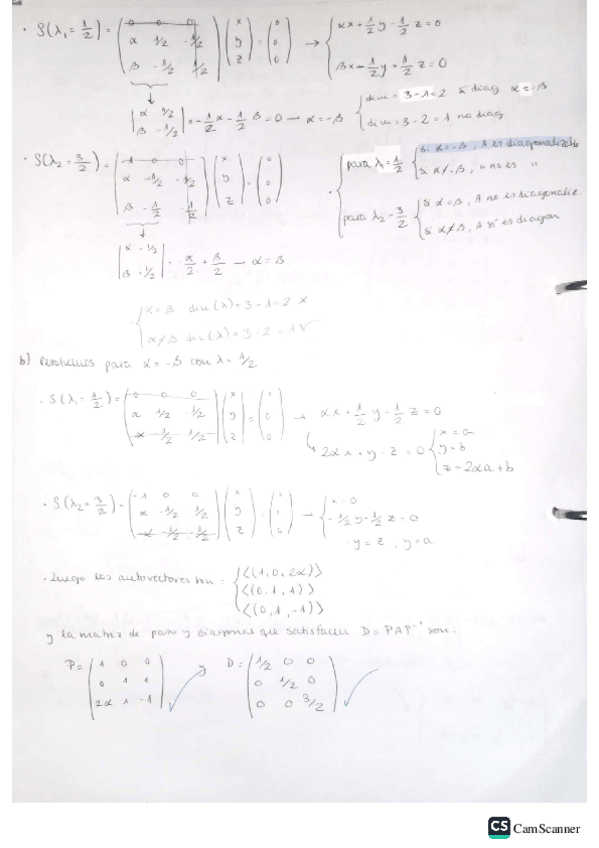 · S(λ₁ = 1/2) = ( 0 0 0 / α 1/2 -1/2 / β -1/2 1/2 ) ( x / y / z ) = ( 0 / 0 / 0 ) → { αx + 1/2 y - 1/2 z = 0
βx - 1/2 y + 1/2 z = 0
| α 1/2 / β -1/2 | = -1/2 α - 1/2 β = 0 → α = -β { dim = 3-1 = 2 si diag α = -β
dim = 3-2 = 1 no diag
· S(λ₂ = 3/2) = ( -1 0 0 / α -1/2 -1/2 / β -1/2 -1/2 ) ( x / y / z ) = ( 0 / 0 / 0 )
· { para λ₁ = 1/2 { si α = -β, A es diagonalizable
si α ≠ -β, " no es "
para λ₂ = 3/2 { si α = β, A no es diagonaliz.
si α ≠ β, A sí es diagon
| α -1/2 / β -1/2 | = -α/2 + β/2 → α = β
{ α = β dim(λ) = 3-1 = 2 x
α ≠ β dim(λ) = 3-2 = 1 ✓
b) Resolvemos para α = -β con λ = 1/2
· S(λ₁ = 1/2) = ( 0 0 0 / α 1/2 -1/2 / -α -1/2 1/2 ) ( x / y / z ) = ( 0 / 0 / 0 ) → αx + 1/2 y - 1/2 z = 0
2αx + y - z = 0 { x = a
y = b
z = 2αa + b
· S(λ₂ = 3/2) = ( -1 0 0 / α -1/2 -1/2 / -α -1/2 -1/2 ) ( x / y / z ) = ( 0 / 0 / 0 ) → { x = 0
-1/2 y - 1/2 z = 0
-y = z, y = a
· Luego los autovectores son: { <(1, 0, 2α)>
<(0, 1, 1)>
<(0, 1, -1)>
y la matriz de paso y diagonal que satisfacen D = PAP⁻¹ son:
P = ( 1 0 0 / 0 1 1 / 2α 1 -1 ) y D = ( 1/2 0 0 / 0 1/2 0 / 0 0 3/2 )
CS CamScanner